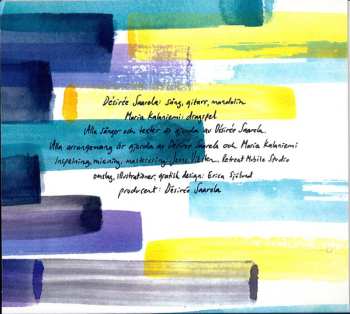 Désirée Saarela: sång, gitarr, mandolin
Maria Kalaniemi: dragspel
Alla sånger och texter är gjorda av Désirée Saarela
Alla arrangemang är gjorda av Désirée Saarela och Maria Kalaniemi
Inspelning, mixning, mastrering: Retreat Mobile Studio
omslag, illustrationer, grafisk design: Erica Sjöbrud
producent: Désirée Saarela